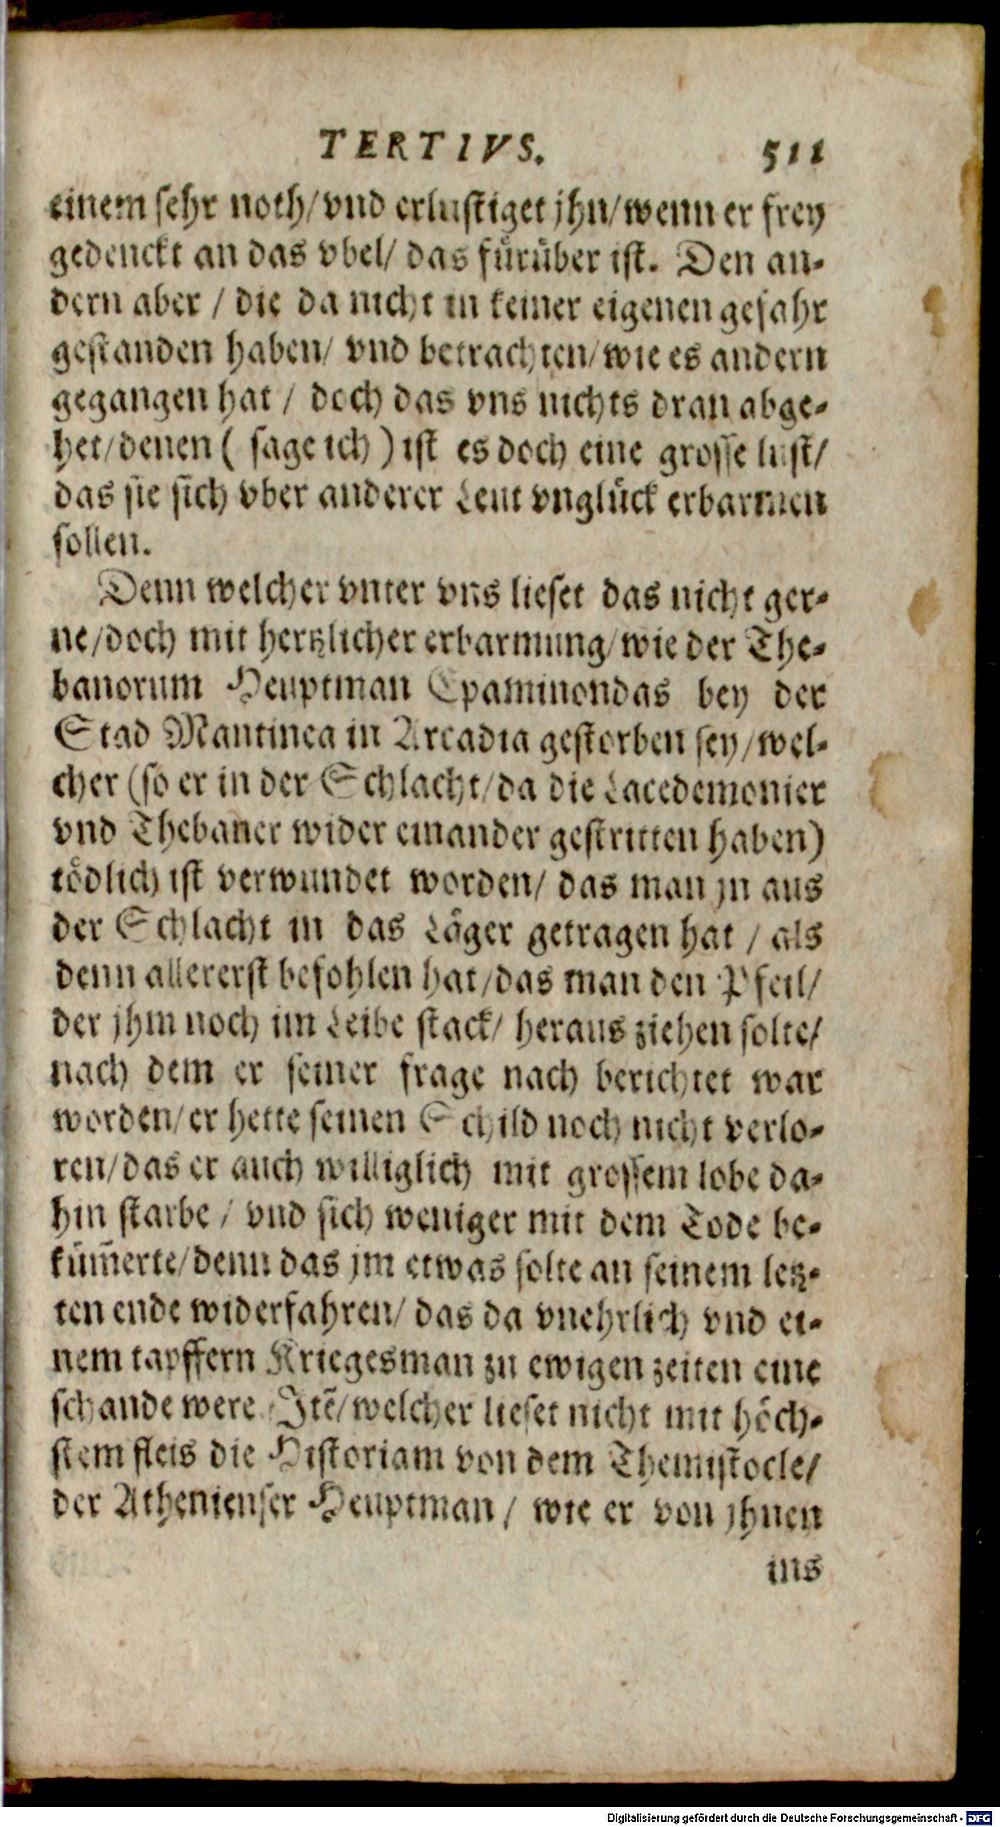 TERTIVS. 511
einem sehr noth/vnd erlustiget jhn/wenn er frey
gedenckt an das vbel/ das fürüber ist. Den an-
dern aber / die da nicht in keiner eigenen gefahr
gestanden haben/ vnd betrachten/wie es andern
gegangen hat / doch das vns nichts dran abge-
het/denen ( sage ich ) ist es doch eine grosse lust/
das sie sich vber anderer Leut vnglück erbarmen
sollen.
Denn welcher vnter vns lieset das nicht ger-
ne/doch mit hertzlicher erbarmung/wie der The-
banorum Heuptman Epaminondas bey der
Stad Mantinea in Arcadia gestorben sey/wel-
cher (so er in der Schlacht/da die Lacedemonier
vnd Thebaner wider einander gestritten haben)
tödlich ist verwundet worden/ das man jn aus
der Schlacht in das Läger getragen hat / als
denn allererst befohlen hat/das man den Pfeil/
der jhm noch im Leibe stack/ heraus ziehen solte/
nach dem er seiner frage nach berichtet war
worden/er hette seinen Schild noch nicht verlo-
ren/das er auch williglich mit grossem lobe da-
hin starbe / vnd sich weniger mit dem Tode be-
küm̃erte/denn das jm etwas solte an seinem letz-
ten ende widerfahren/ das da vnehrlich vnd ei-
nem tapffern Kriegesman zu ewigen zeiten eine
schande were. Itẽ/welcher lieset nicht mit höch-
stem fleis die Historiam von dem Themistocle/
der Athenienser Heuptman / wie er von jhnen
ins
Digitalisierung gefördert durch die Deutsche Forschungsgemeinschaft - DFG